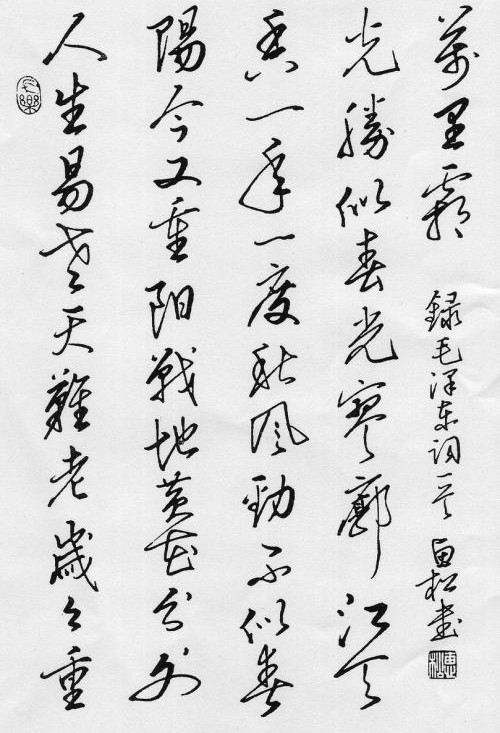 人生易老天難老歲々重
陽今又重阳戰地黄花分外
香一年一度秋风勁不似春
光勝似春光寥廓江天
萬里霜
録毛泽东词一首 松書